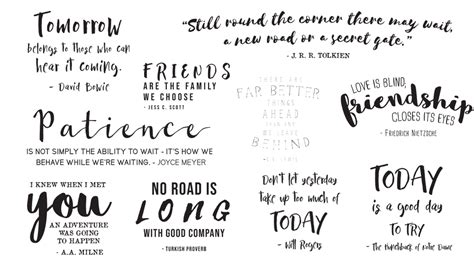 Tomorrow
belongs to those who can
hear it coming.
- David Bowie
"Still round the corner there may wait,
a new road or a secret gate."
- J. R. R. TOLKIEN
FRIENDS
ARE THE FAMILY
WE CHOOSE
- JESS C. SCOTT
THERE ARE
FAR BETTER
THINGS
AHEAD
WE LEAVE
BEHIND
LOVE IS BLIND,
friendship
CLOSES ITS EYES
- FRIEDRICH NIETZSCHE
Patience
IS NOT SIMPLY THE ABILITY TO WAIT - IT'S HOW WE
BEHAVE WHILE WE'RE WAITING. - JOYCE MEYER
I KNEW WHEN I MET
you
AN ADVENTURE
WAS GOING
TO HAPPEN
- A.A. MILNE
NO ROAD IS
LONG
WITH GOOD COMPANY
- TURKISH PROVERB
Don't let yesterday
take up too much of
TODAY
- Will Rogers
TODAY
is a good day
TO TRY
- The Hunchback of Notre Dame